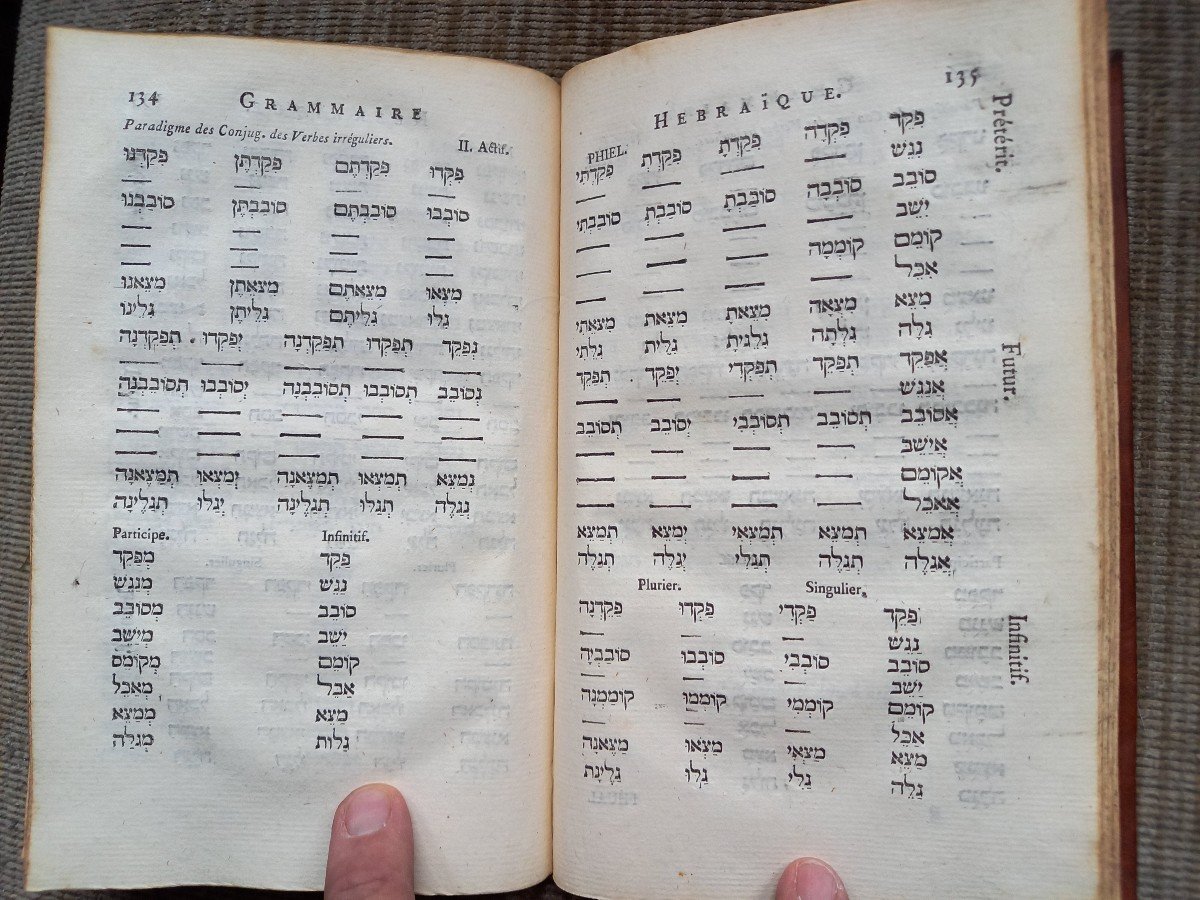 134 GRAMMAIRE
Paradigme des Conjug. des Verbes irréguliers. II. Actif.
פִּקְּדוּ פִּקַּדְתֶּם פִּקַּדְתֶּן פִּקַּדְנוּ
— — — —
סוֹבְבוּ סוֹבַבְתֶּם סוֹבַבְתֶּן סוֹבַבְנוּ
— — — —
— — — —
— — — —
מִצְּאוּ מִצֵּאתֶם מִצֵּאתֶן מִצֵּאנוּ
גִּלּוּ גִּלִּיתֶם גִּלִּיתֶן גִּלִּינוּ
נְפַקֵּד תְּפַקֵּדְנָה תְּפַקְּדוּ יְפַקְּדוּ תְּפַקֵּדְנָה
— — — — —
נְסוֹבֵב תְּסוֹבְבוּ תְּסוֹבֵבְנָה יְסוֹבְבוּ תְּסוֹבֵבְנָה
— — — — —
— — — — —
— — — — —
נְמַצֵּא תְּמַצְּאוּ תְּמַצֶּאנָה יְמַצְּאוּ תְּמַצֶּאנָה
נְגַלֶּה תְּגַלּוּ תְּגַלֶּינָה יְגַלּוּ תְּגַלֶּינָה
Participe. Infinitif.
פַּקֵּד מְפַקֵּד
נַגֵּשׁ מְנַגֵּשׁ
סוֹבֵב מְסוֹבֵב
יַשֵּׁב מְיַשֵּׁב
קוֹמֵם מְקוֹמֵם
אַכֵּל מְאַכֵּל
מַצֵּא מְמַצֵּא
גַּלּוֹת מְגַלֶּה
HEBRAÏQUE. 135
PHIEL.
Prétérit.
פִּקֵּד פִּקְּדָה פִּקַּדְתָּ פִּקַּדְתְּ פִּקַּדְתִּי
נִגֵּשׁ — — — —
סוֹבֵב סוֹבְבָה סוֹבַבְתָּ סוֹבַבְתְּ סוֹבַבְתִּי
יִשֵּׁב — — — —
קוֹמֵם קוֹמְמָה — — —
אִכֵּל — — — —
מִצֵּא מִצְּאָה מִצֵּאתָ מִצֵּאת מִצֵּאתִי
גִּלָּה גִּלְּתָה גִּלִּיתָ גִּלִּית גִּלִּתִי
Futur.
אֲפַקֵּד תְּפַקֵּד תְּפַקְּדִי יְפַקֵּד תְּפַקֵּד
אֲנַגֵּשׁ — — — —
אֲסוֹבֵב תְּסוֹבֵב תְּסוֹבְבִי יְסוֹבֵב תְּסוֹבֵב
אֲיַשֵּׁב — — — —
אֲקוֹמֵם — — — —
אֲאַכֵּל — — — —
אֲמַצֵּא תְּמַצֵּא תְּמַצְּאִי יְמַצֵּא תְּמַצֵּא
אֲגַלֶּה תְּגַלֶּה תְּגַלִּי יְגַלֶּה תְּגַלֶּה
Plurier. Singulier.
Infinitif.
פַּקֵּד פַּקְּדִי פַּקְּדוּ פַּקֵּדְנָה
נַגֵּשׁ — — —
סוֹבֵב סוֹבְבִי סוֹבְבוּ סוֹבֵבְיָה
יַשֵּׁב — — —
קוֹמֵם קוֹמְמִי קוֹמְמוּ קוֹמֵמְנָה
אַכֵּל — — —
מַצֵּא מַצְּאִי מַצְּאוּ מַצֶּאנָה
גַּלֵּה גַּלִּי גַּלּוּ גַּלֶּינָת